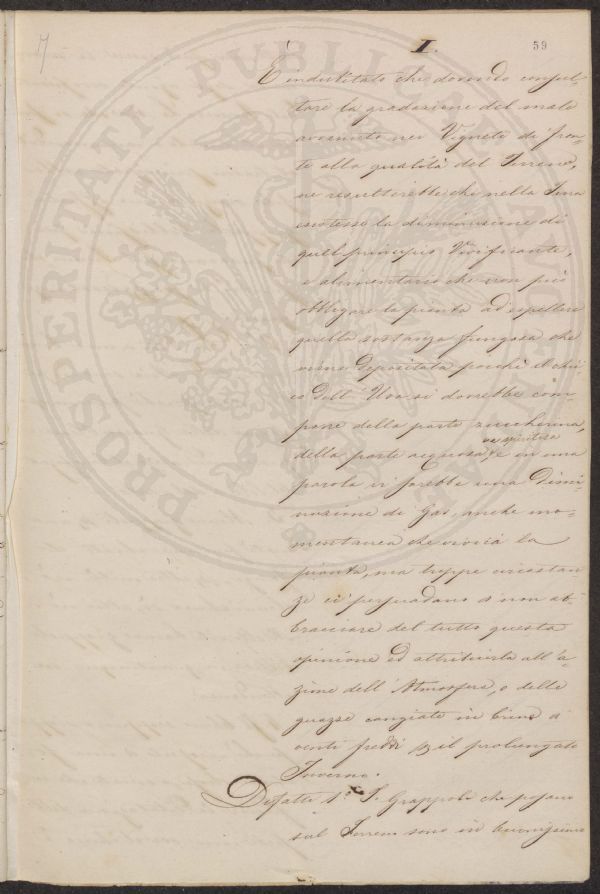 I.
59
È indubitato che dovendo consul-
tare la gradazione del male
avvenuto nei Vigneti di fron-
te alla qualità del Terreno,
ne resulterebbe che nella Terra
esistesse la diminuzione di
quel principio Vivificante,
e alimentario che non può
obbligare la pianta ad espellere
quella sostanza fungosa che
viene depositata perchè il
dell' Uva si dovrebbe com-
porre della parte zuccherina,
della parte acquosa, e in una
parola vi sarebbe una Dimi-
nuzione di Gas, anche mo-
mentanea che vivicà la
pianta, ma troppe circostan-
ze ci persuadano a non ab-
bracciare del tutto questa
opinione ed attribuirla all'a-
zione dell'Atmosfera, o delle
guazze cangiate in brina a
venti freddi il prolungato
Inverno.
Difatti 1.° I Grappoli che posano
sul Terreno sono in buonissimo
PROSPERITATI PUBLICAE AUGENDAE